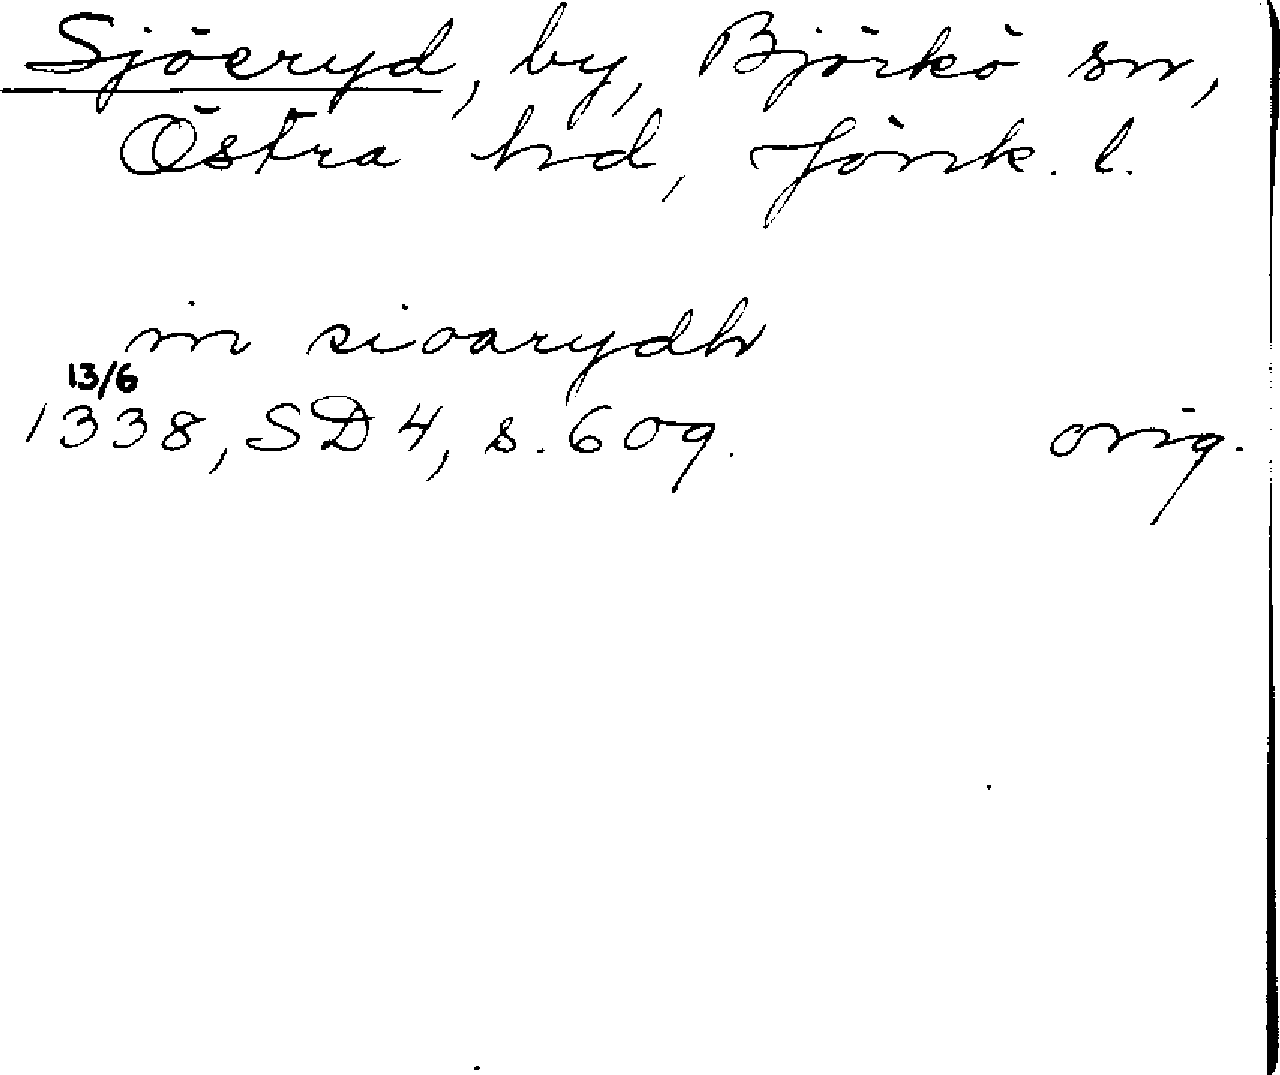 Sjöeryd, by, Björkö sn,
Östra hd, Jönk. l.
in sioarydh
13/6
1338, SD 4, s. 609. orig.